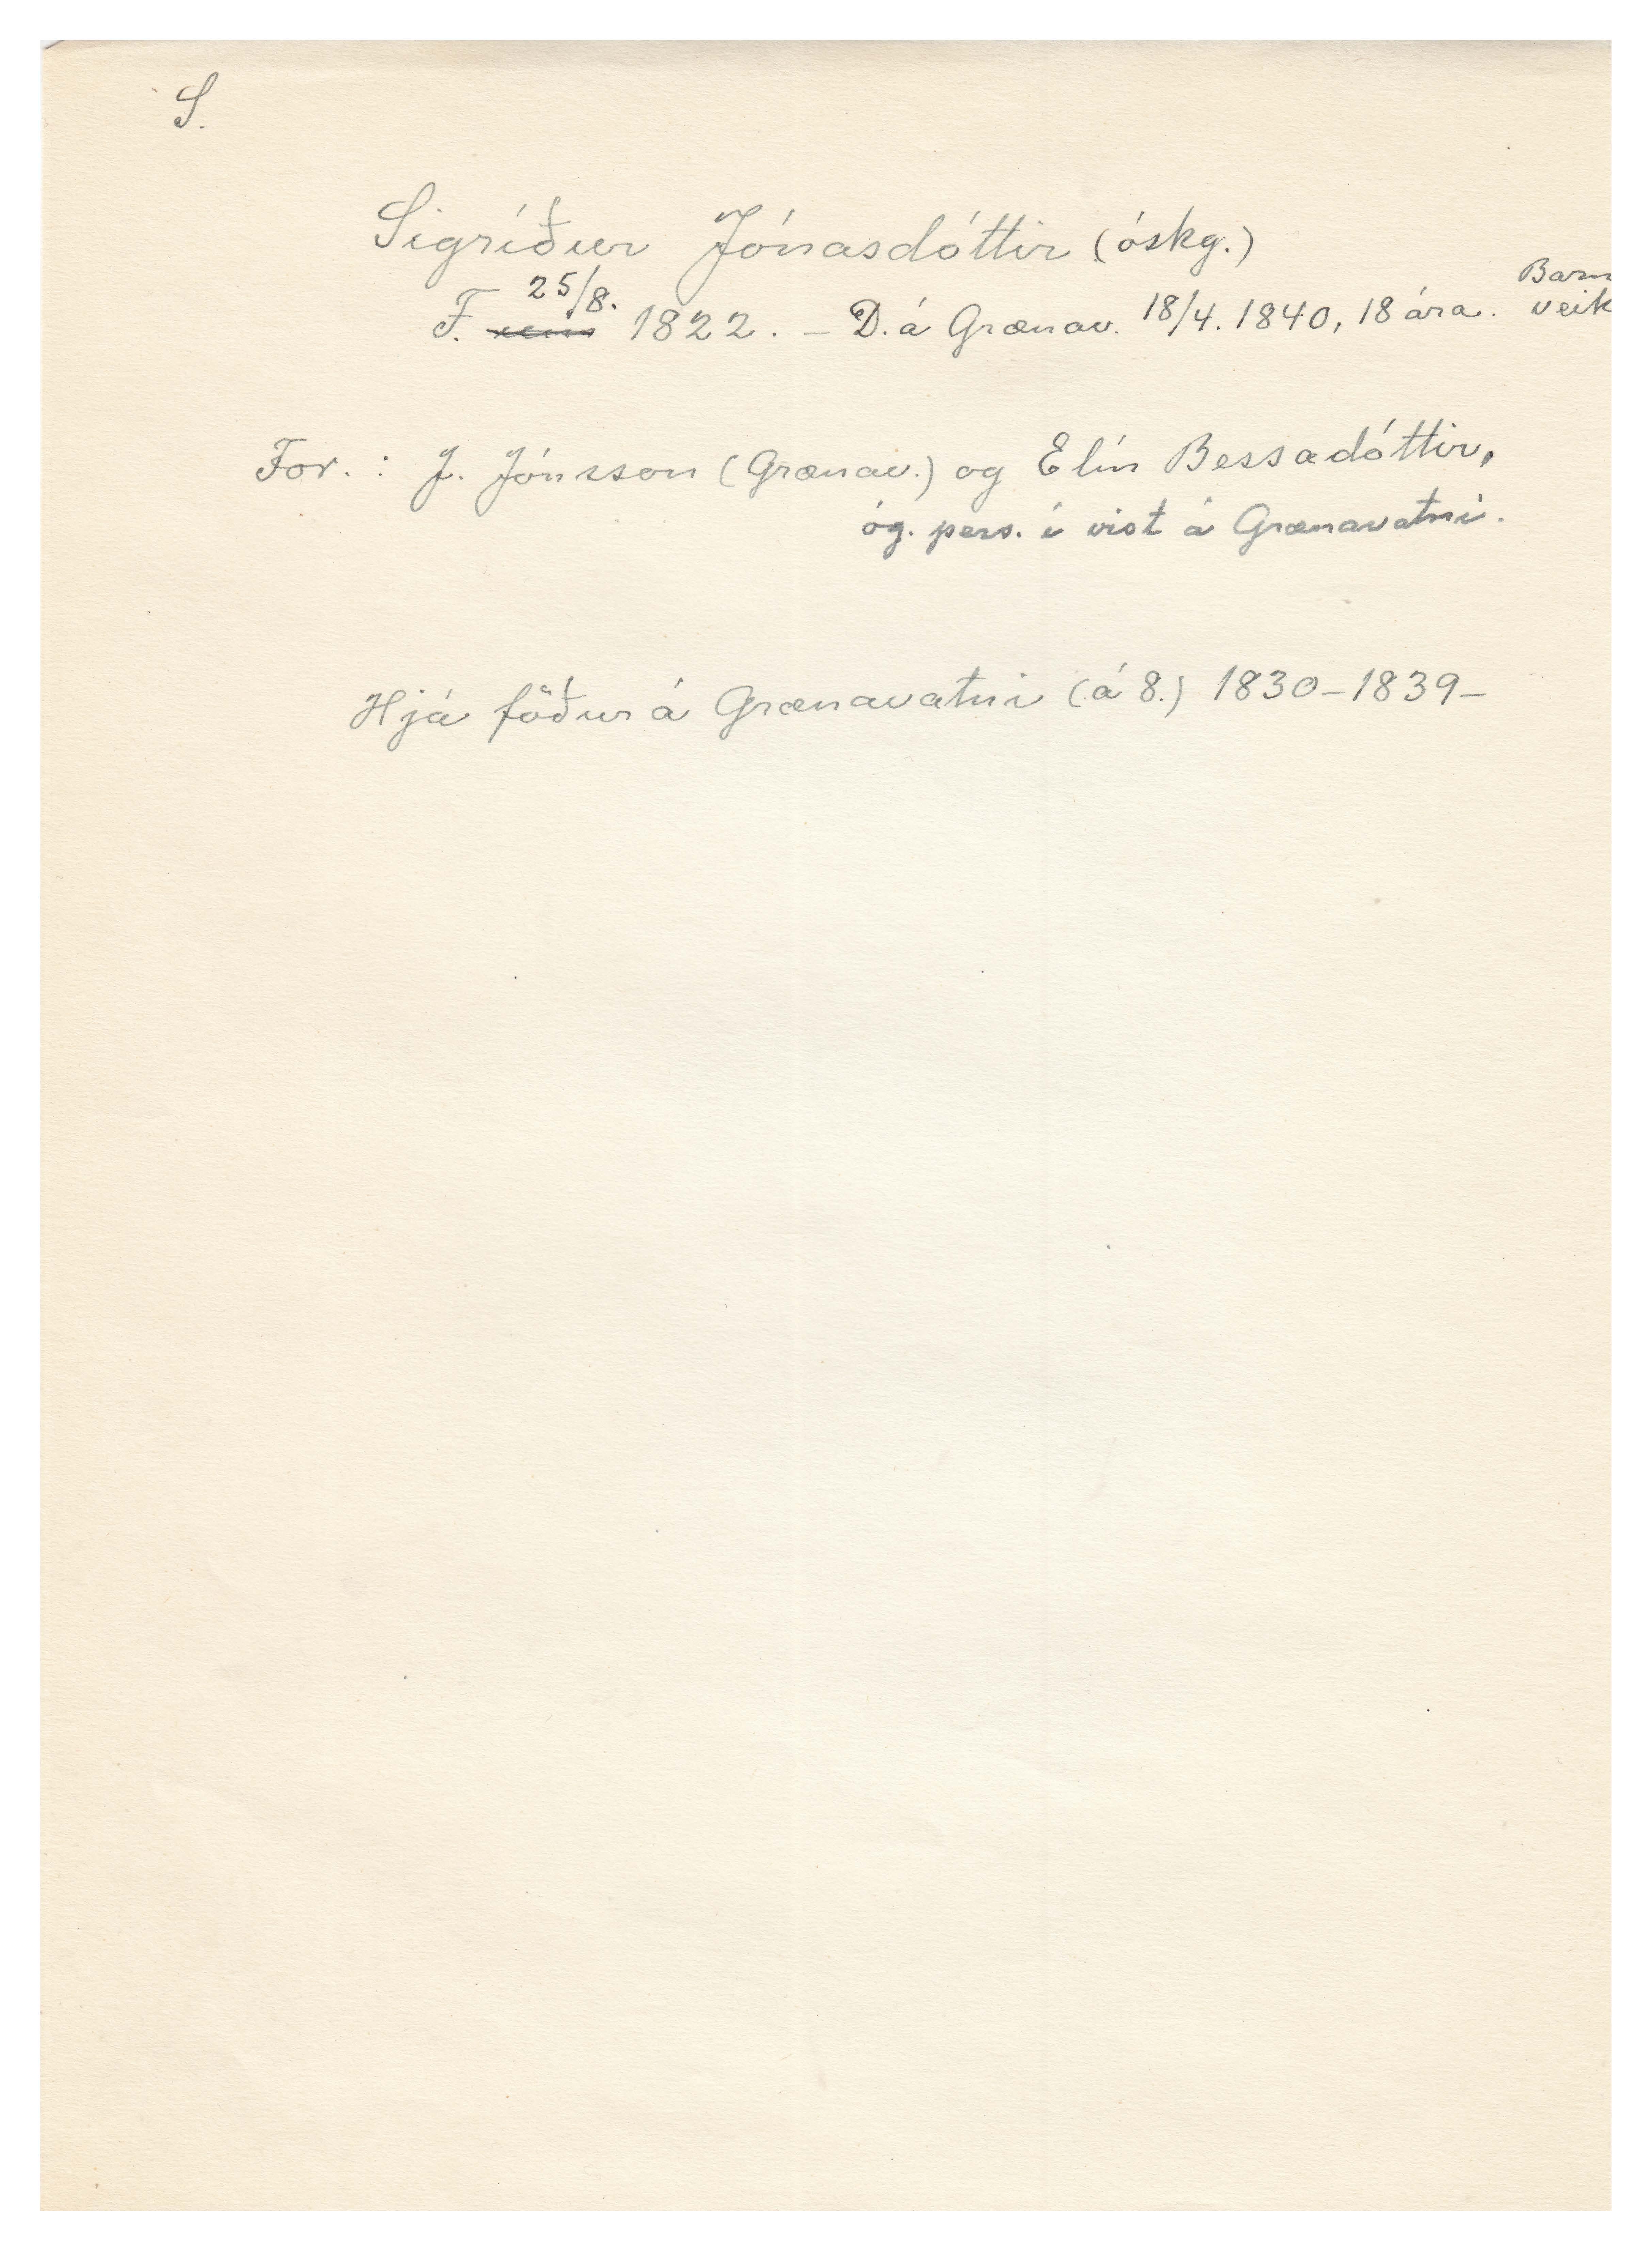 S.
Sigríður Jónasdóttir (óskg.)
F. 25/8. 1822. – D. á Grænav. 18/4. 1840, 18 ára. Barn
veik
For. : J. Jónsson (Grænav.) og Elín Bessadóttir,
óg. pers. í vist á Grænavatni.
Hjá föður á Grænavatni (á 8.) 1830–1839–